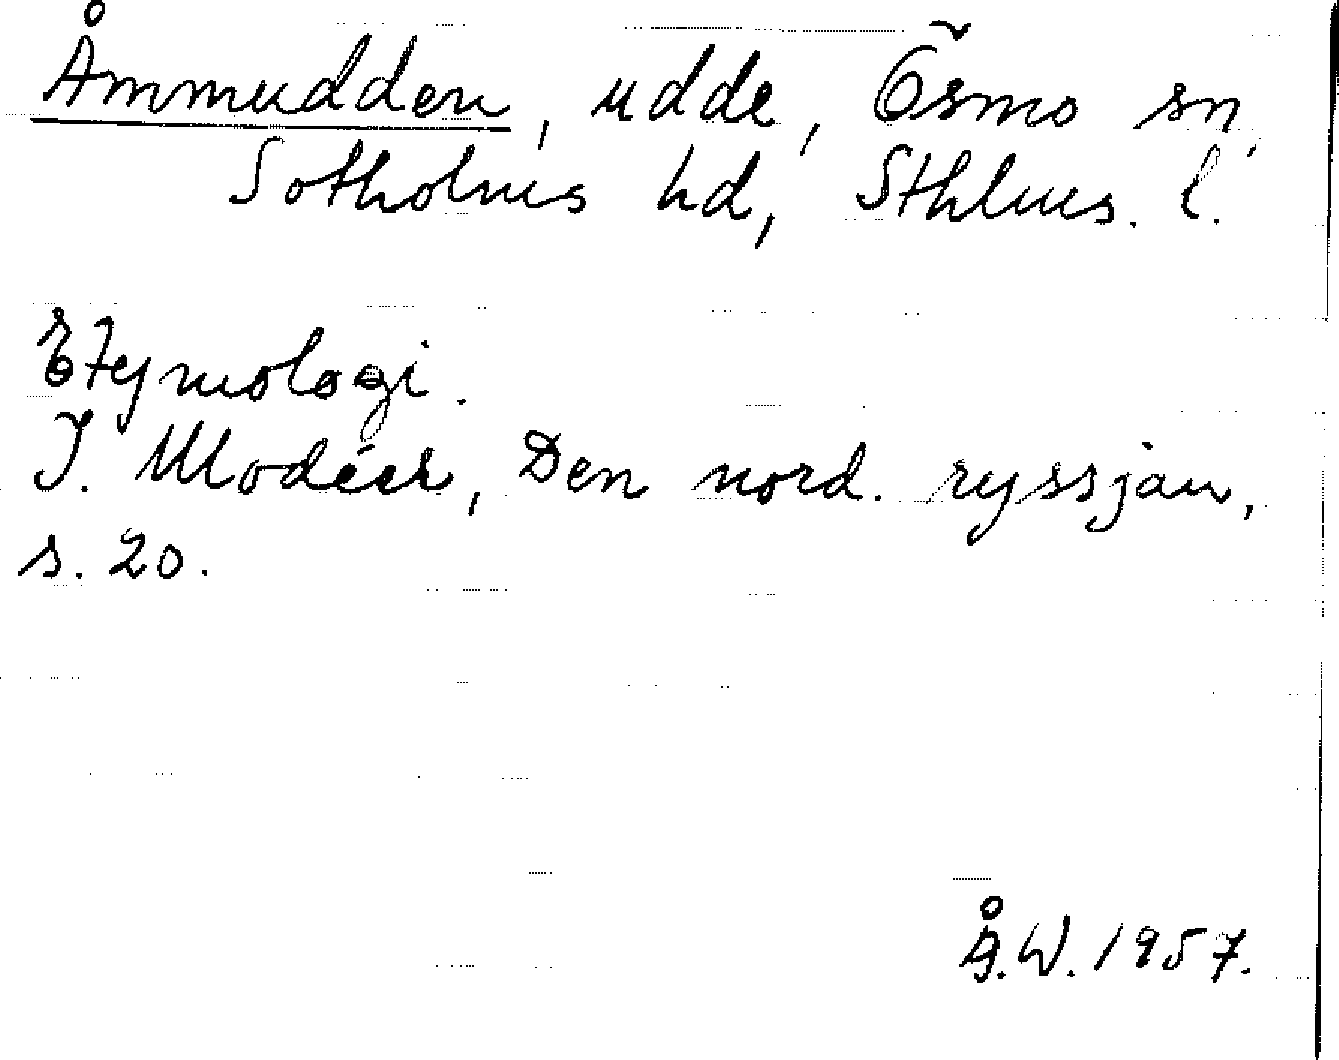 Åmmudden, udde, Ösmo sn,
Sotholms hd, Sthlms. l.
Etymologi.
I. Modéer, Den nord. ryssjan,
s. 20.
Å.W. 1957.